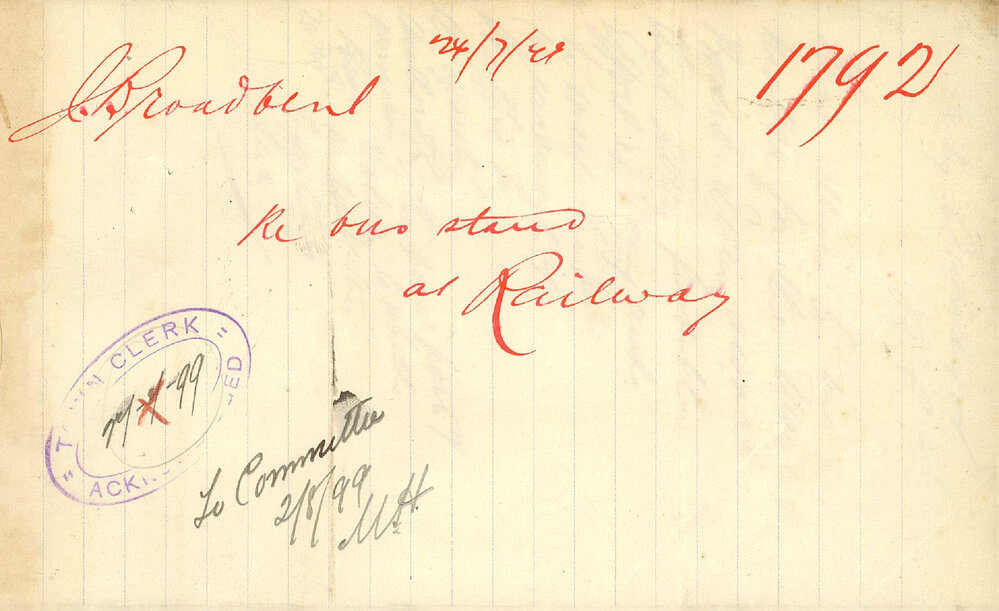 24/7/99
J. Broadbent 1792
Re bus stand
at Railway
TOWN CLERK
27-7-99
ACKNOWLEDGED
To Committee
2/8/99